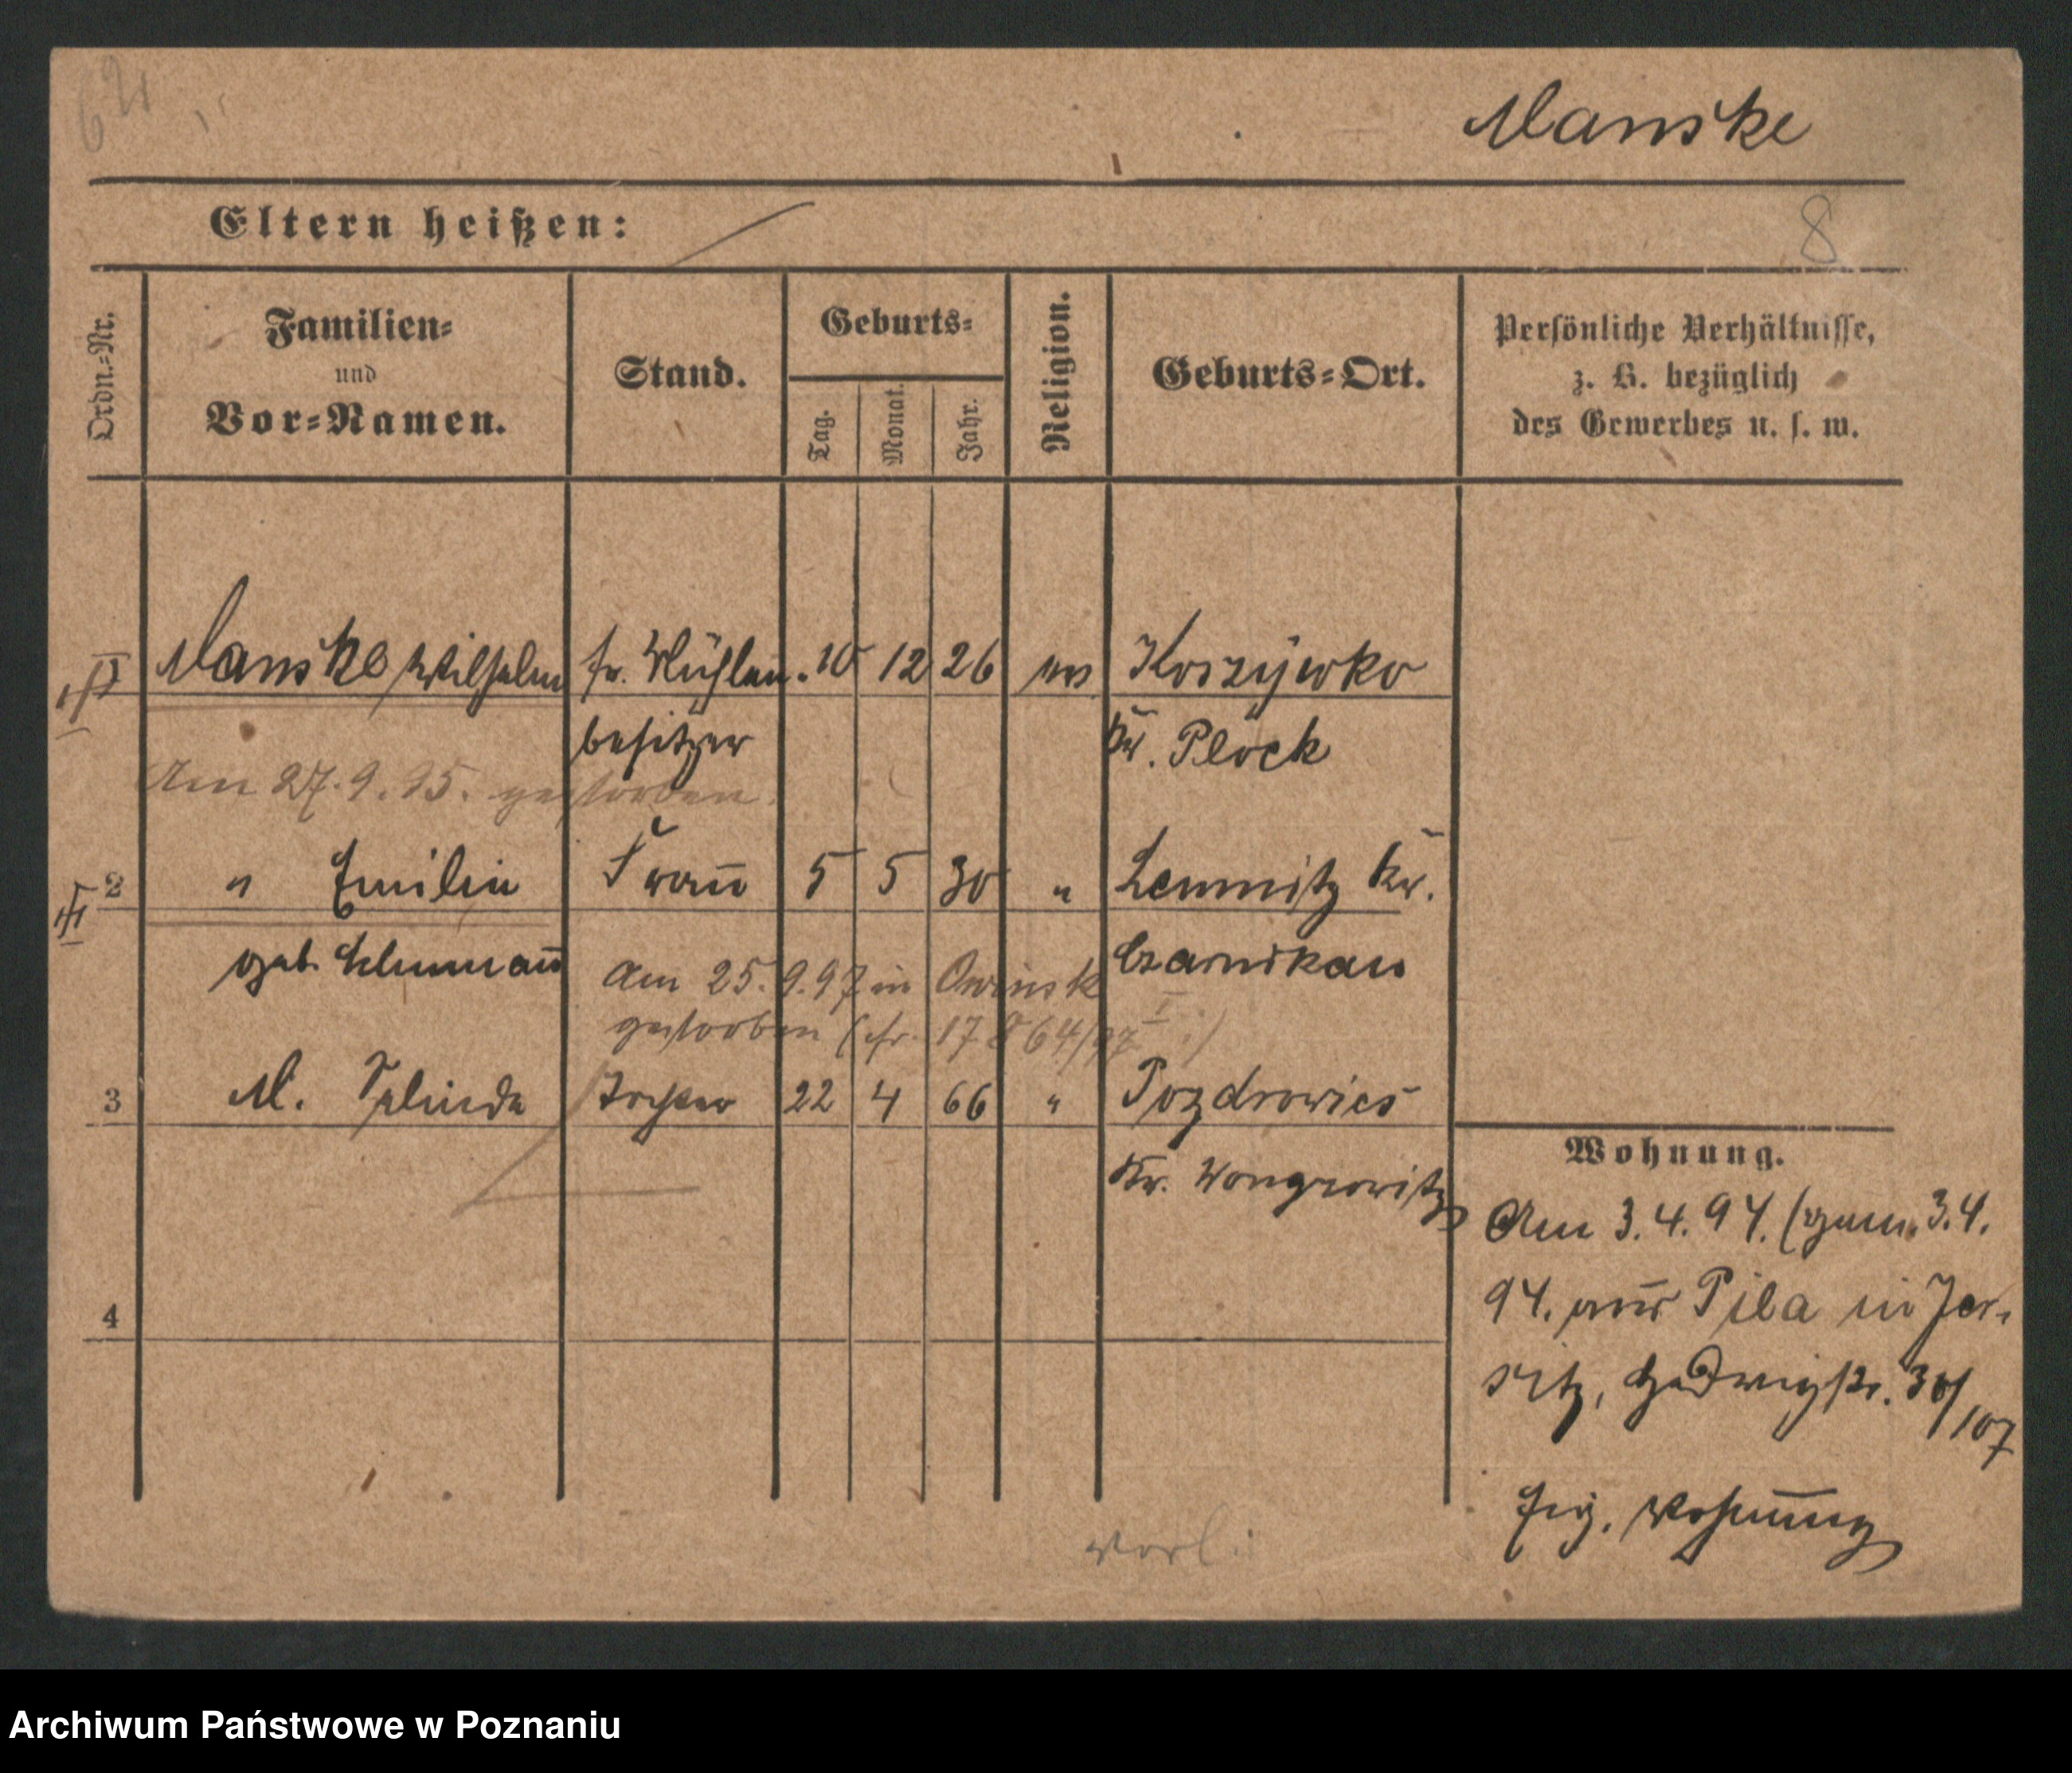 Manske
Eltern heißen:
8
Ordn.-Nr.
Familien-
und
Vor-Namen.
Stand.
Geburts-
Tag.
Monat.
Jahr.
Religion.
Geburts-Ort.
Persönliche Verhältnisse,
z. B. bezüglich
des Gewerbes u. s. w.
Manske Wilhelm fr. Mühlen- 10 12 26 Koszywko
besitzer Kr. Plock
Am 27.9.95. gestorben.
2 " Emilie Frau 5 5 30 " Lemnitz Kr.
geb. Czarnikau
Am 25.9.97 in Owinsk
gestorben (cfr. 17864/97 I.)
3 M. Tochter 22 4 66 " Pozdrowice
Kr. Wongrowitz
4
Wohnung.
Am 3.4.94. (gem. 3.4.
94. aus Pila in Jer-
sitz, Hedwigstr. 30/107
Eig. Wohnung
vorl.
Archiwum Państwowe w Poznaniu